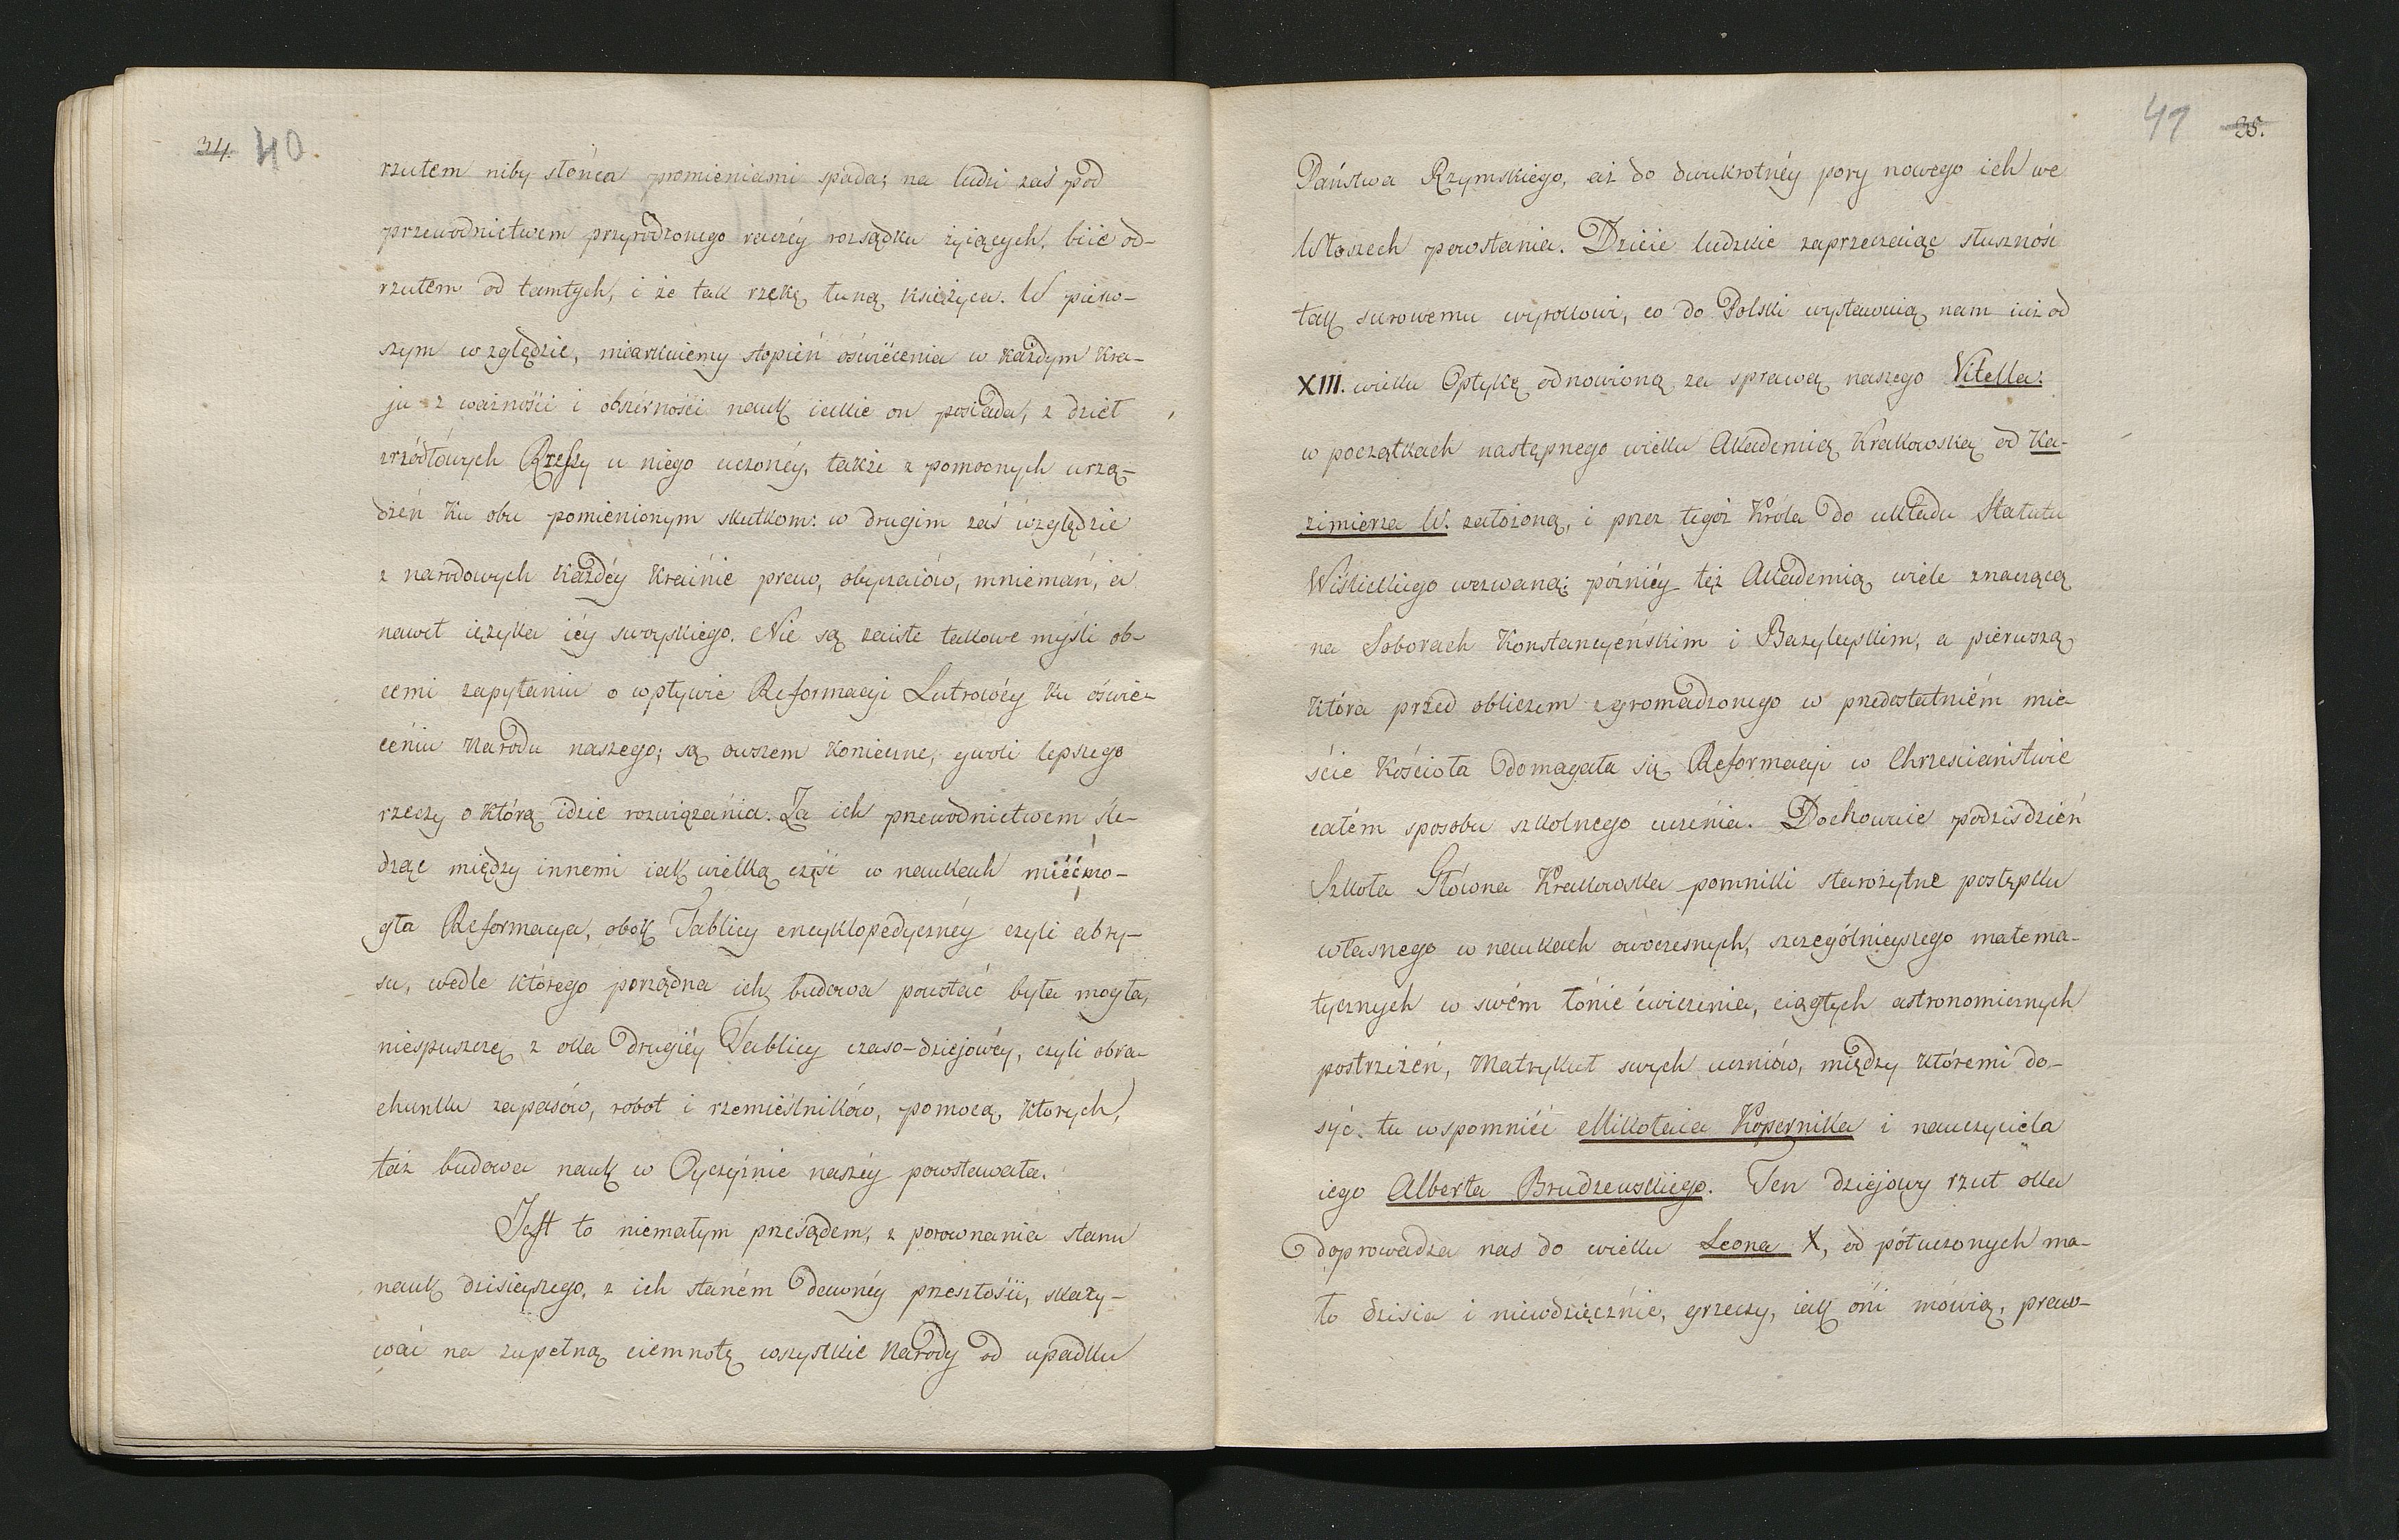 34. 40.
rzutem niby słońca promieniami spada; na ludzi zaś pod
przewodnictwem przyrodzonego raczéy rozsądku żyiących, biie od-
rzutem od tamtych, i że tak rzekę łuną księżyca. W pierw-
szym względzie, miarkuiemy stopień oświécenia w każdym kra-
ju z ważności i obszérności nauk iakie on posiada, z dzieł
zrzódłowych Rzeszy u niego uczonéy, także z pomocnych urzą-
dzeń ku obu pomienionym skutkom: w drugim zaś względzie
z narodowych każdéy Krainie praw, obyczaiów, mniemań, a
nawet ięzyka iéy swoyskiego. Nie są zaiste takowe myśli ob-
cemi zapytaniu o wpływie Reformacyi Lutrowéy ku oświe-
céniu Narodu naszego; są owszem konieczne, gwoli lepszego
rzeczy o którą idzie rozwiązania. Za ich przewodnictwem śle-
dząc między innemi iak wielką część w naukach miéć mo-
gła Reformacya, obok Tablicy encyklopedycznéy czyli abry-
su, wedle którego porządna ich budowa powstać była mogła,
niespuszczę z oka drugiéy Tablicy czaso-dziejowéy, czyli obra-
chunku zapasów, robot i rzemieślników, pomocą, których,
taż budowa nauk w Oyczyźnie naszéy powstawała.
Jest to niemałym przesądem, z porownania stanu
nauk dzisieyszego, z ich staném dawnéy przeszłości, skazy-
wać na zupełną ciemnotę wszystkie Narody od upadku
41 35.
Państwa Rzymskiego, aż do dwukrotnéy pory nowego ich we
Włoszech powstania. Dzieie ludzkie zaprzeczaiąc słuszność
tak surowemu wyrokowi, co do Polski wystawuią nam iuż od
XIII. wieku Optykę odnowioną za sprawą naszego Vitella:
w początkach następnego wieku Akademią Krakowską od Ka-
zimierza W. założoną, i przez tegoż Króla do układu Statutu
Wiślickiego wezwaną; późniéy też Akademią wiele znaczącą
na Soborach Konstancyeńskim i Bazyleyskim, a pierwszą
która przed obliczem zgromadzonego w przedostatniém mie-
ście Kościoła domagała się Reformacyi w Chrzesciaństwie
całém sposobu szkolnego uczenia. Dochowuie podziśdzień
Szkoła Główna Krakowska pomniki starożytne postępku
własnego w naukach owoczesnych, szczególnieyszego matema-
tycznych w swém łonie ćwiczenia, ciągłych astronomicznych
postrzeżeń, Matrykuł swych uczniów, między któremi do-
syć tu wspomnieć Mikołaia Kopernika i nauczyciela
iego Alberta Brudzewskiego. Ten dziejowy rzut oka
doprowadza nas do wieku Leona X, od półuczonych ma-
ło dzisia i niewdzięcznie, grzeczy, iak oni mówią, praw-